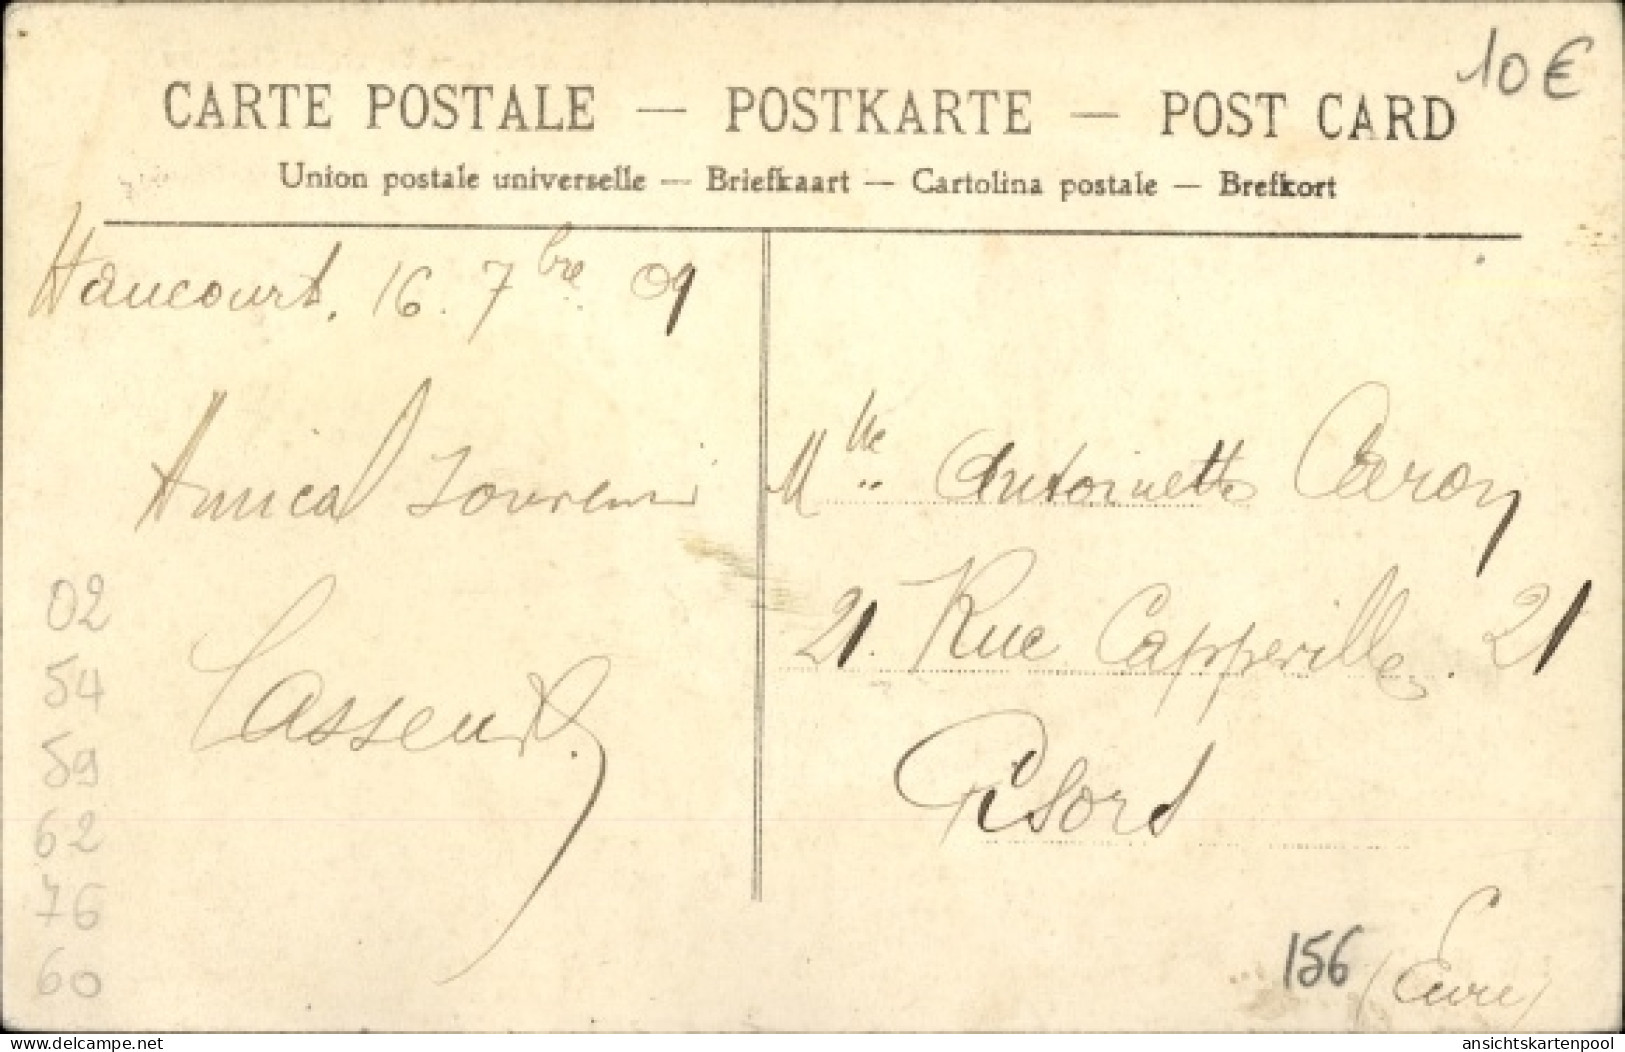 10 €
CARTE POSTALE — POSTKARTE — POST CARD
Union postale universelle — Briefkaart — Cartolina postale — Brefkort
Haucourt, 16. 7bre 09
Amical Souvenir
Mlle Antoinette Caron
21. Rue Cappeville. 21
Gisors
(Eure)
02
54
59
62
76
60
156
ansichtskartenpool